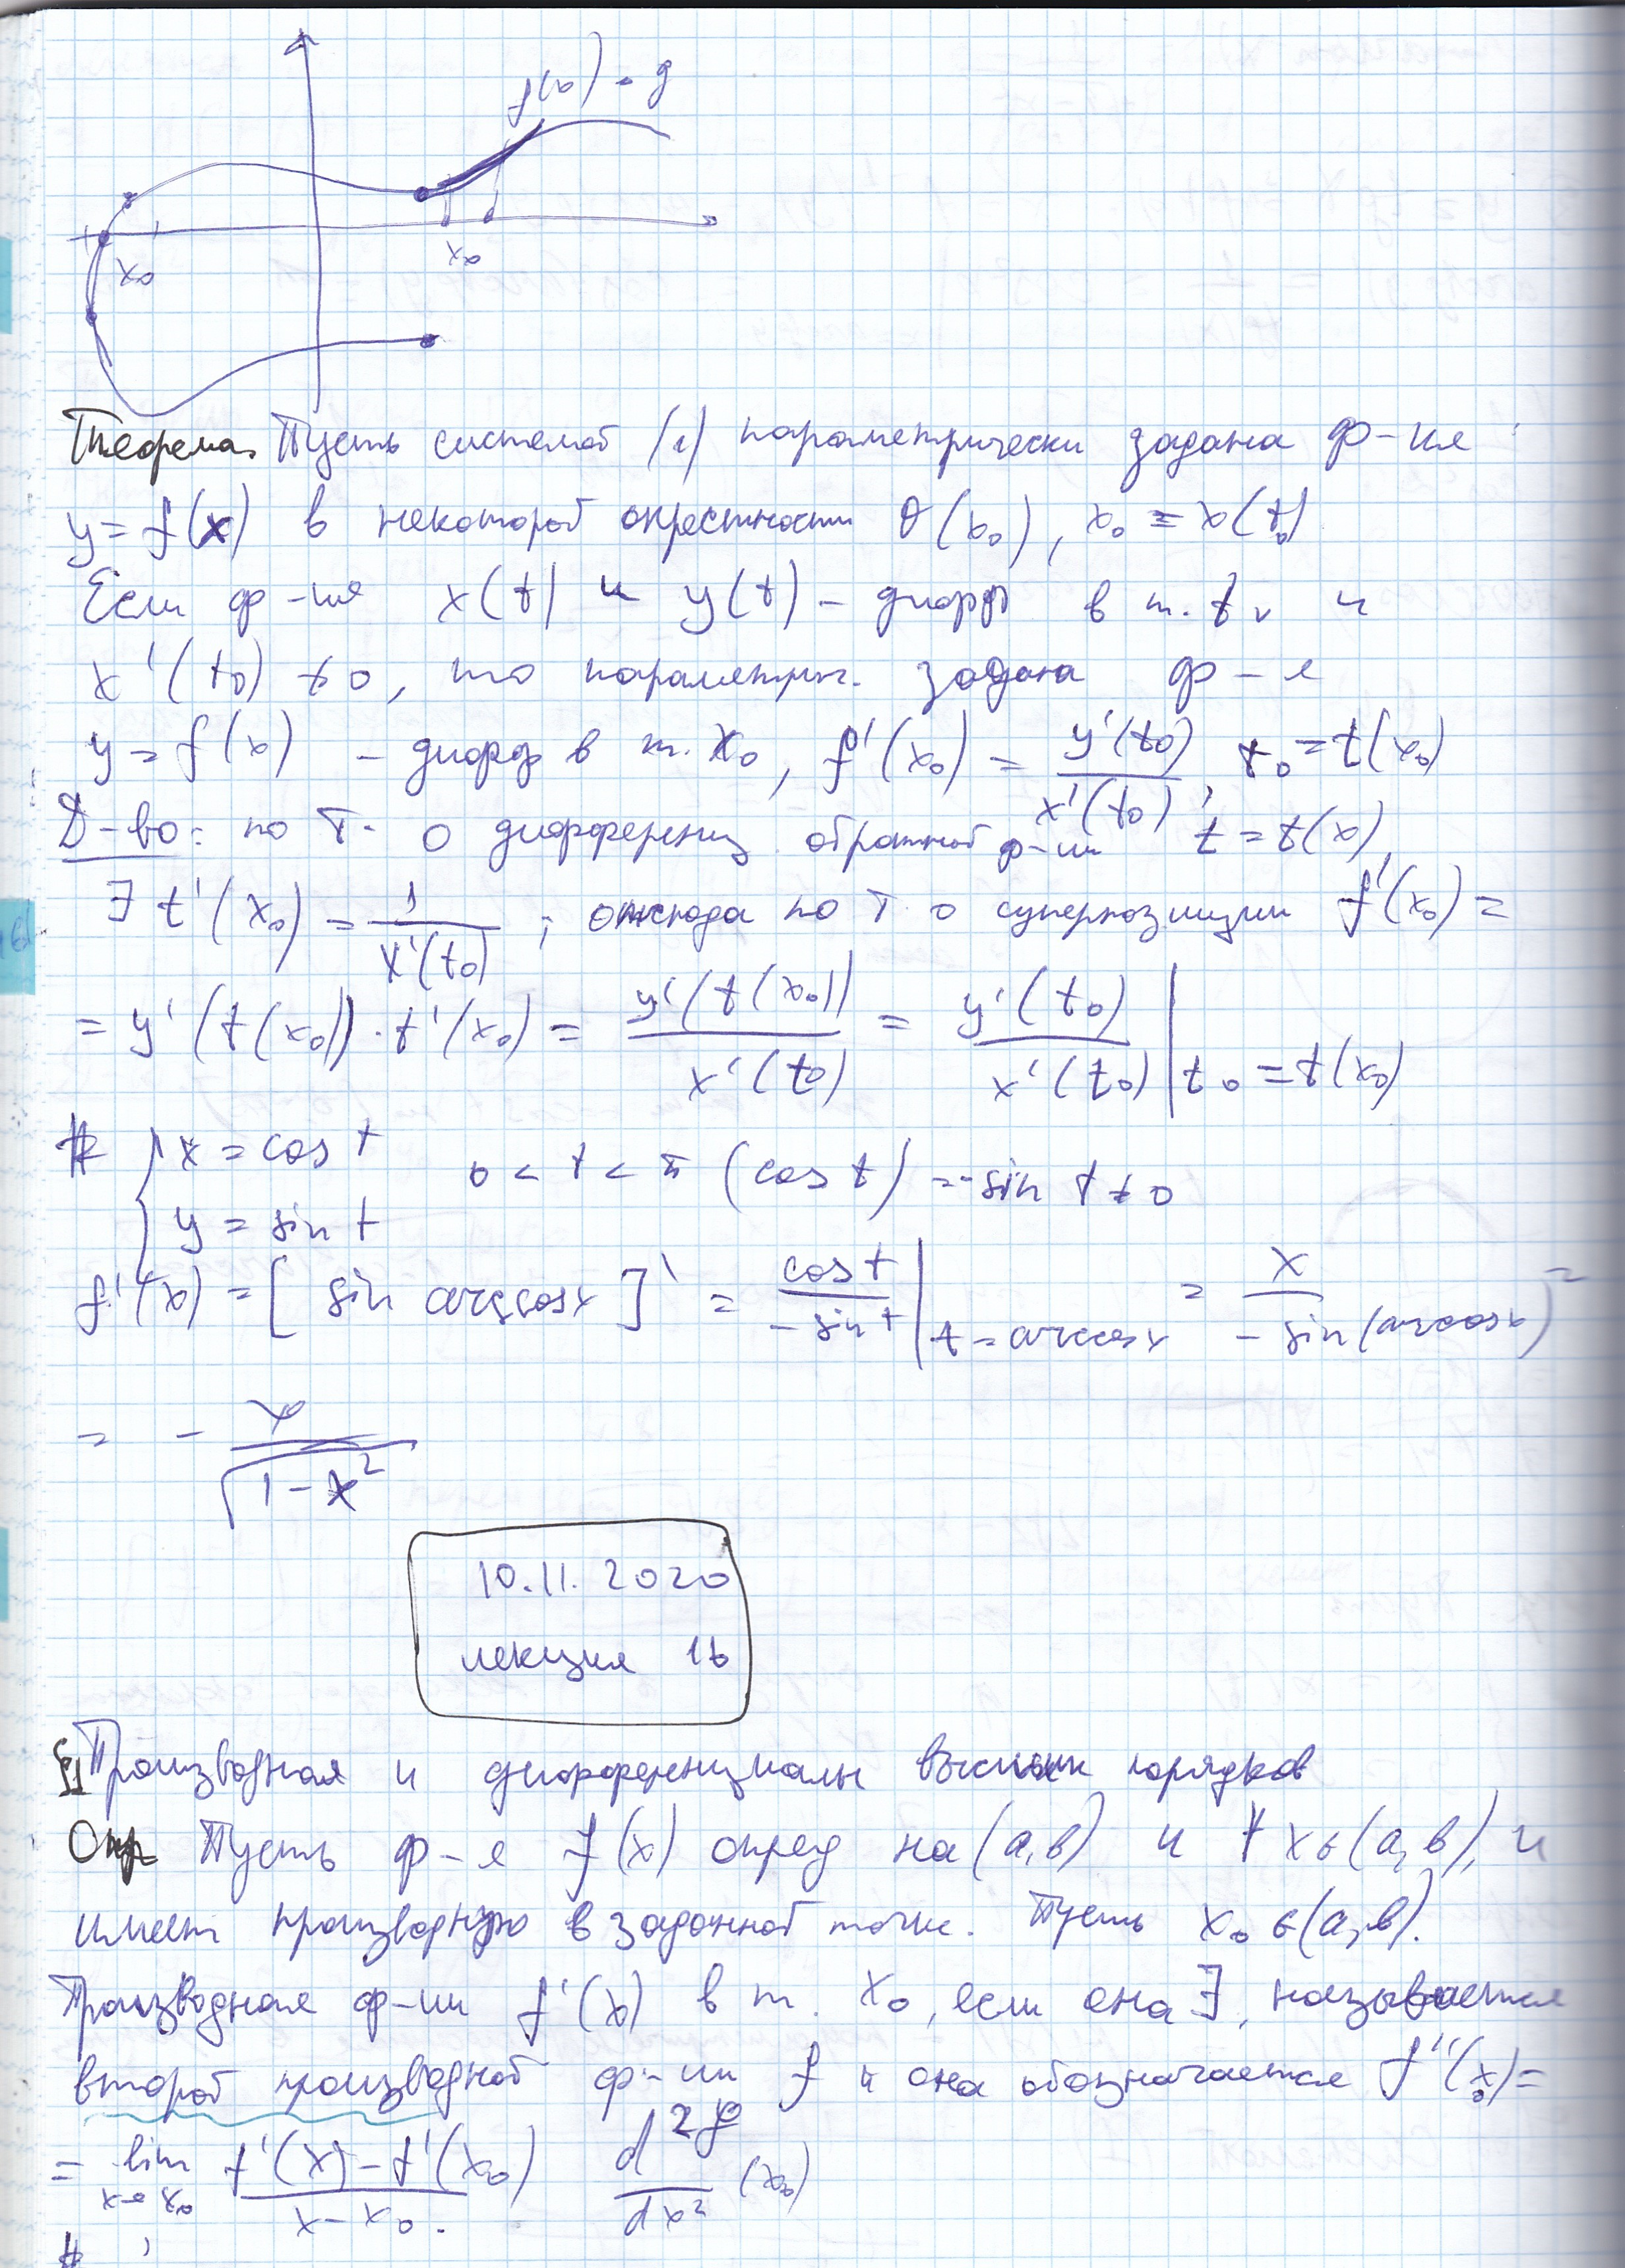 f(x) = y
x₀
x₀
Теорема. Пусть системой (1) параметрически задана ф-ия
y = f(x) в некоторой окрестности O(x₀), x₀ = x(t₀)
Если ф-ия x(t) и y(t) – дифф в т. t₀ и
x'(t₀) ≠ 0, то параметрич. задана ф-я
y = f(x) – дифф в т. x₀, f'(x₀) = y'(t₀)/x'(t₀), t₀ = t(x₀)
Д-во: по Т. о дифференц. обратной ф-ии t = t(x)
∃ t'(x₀) = 1/x'(t₀); отсюда по Т. о суперпозиции f'(x₀) =
= y'(t(x₀)) · t'(x₀) = y'(t(x₀))/x'(t₀) = y'(t₀)/x'(t₀) | t₀ = t(x₀)
# { x = cos t 0 < t < π (cos t) = -sin t ≠ 0
y = sin t
f'(x) = [sin arccosx]' = cos t/-sin t | t = arccosx = x/-sin(arccosx) =
= - x/√1-x²
10.11.2020
лекция 16
§1 Производная и дифференциалы высших порядков
Опр Пусть ф-я f(x) опред на (a,b) и ∀ x∈(a,b), и
имеет производную в заданной точке. Пусть x₀ ∈(a,b).
Производная ф-ии f'(x) в т. x₀, если она ∃, называется
второй производной ф-ии f и она обозначается f''(x₀) =
= lim x→x₀ f'(x) - f'(x₀)/x - x₀. d²f/dx² (x₀)
#